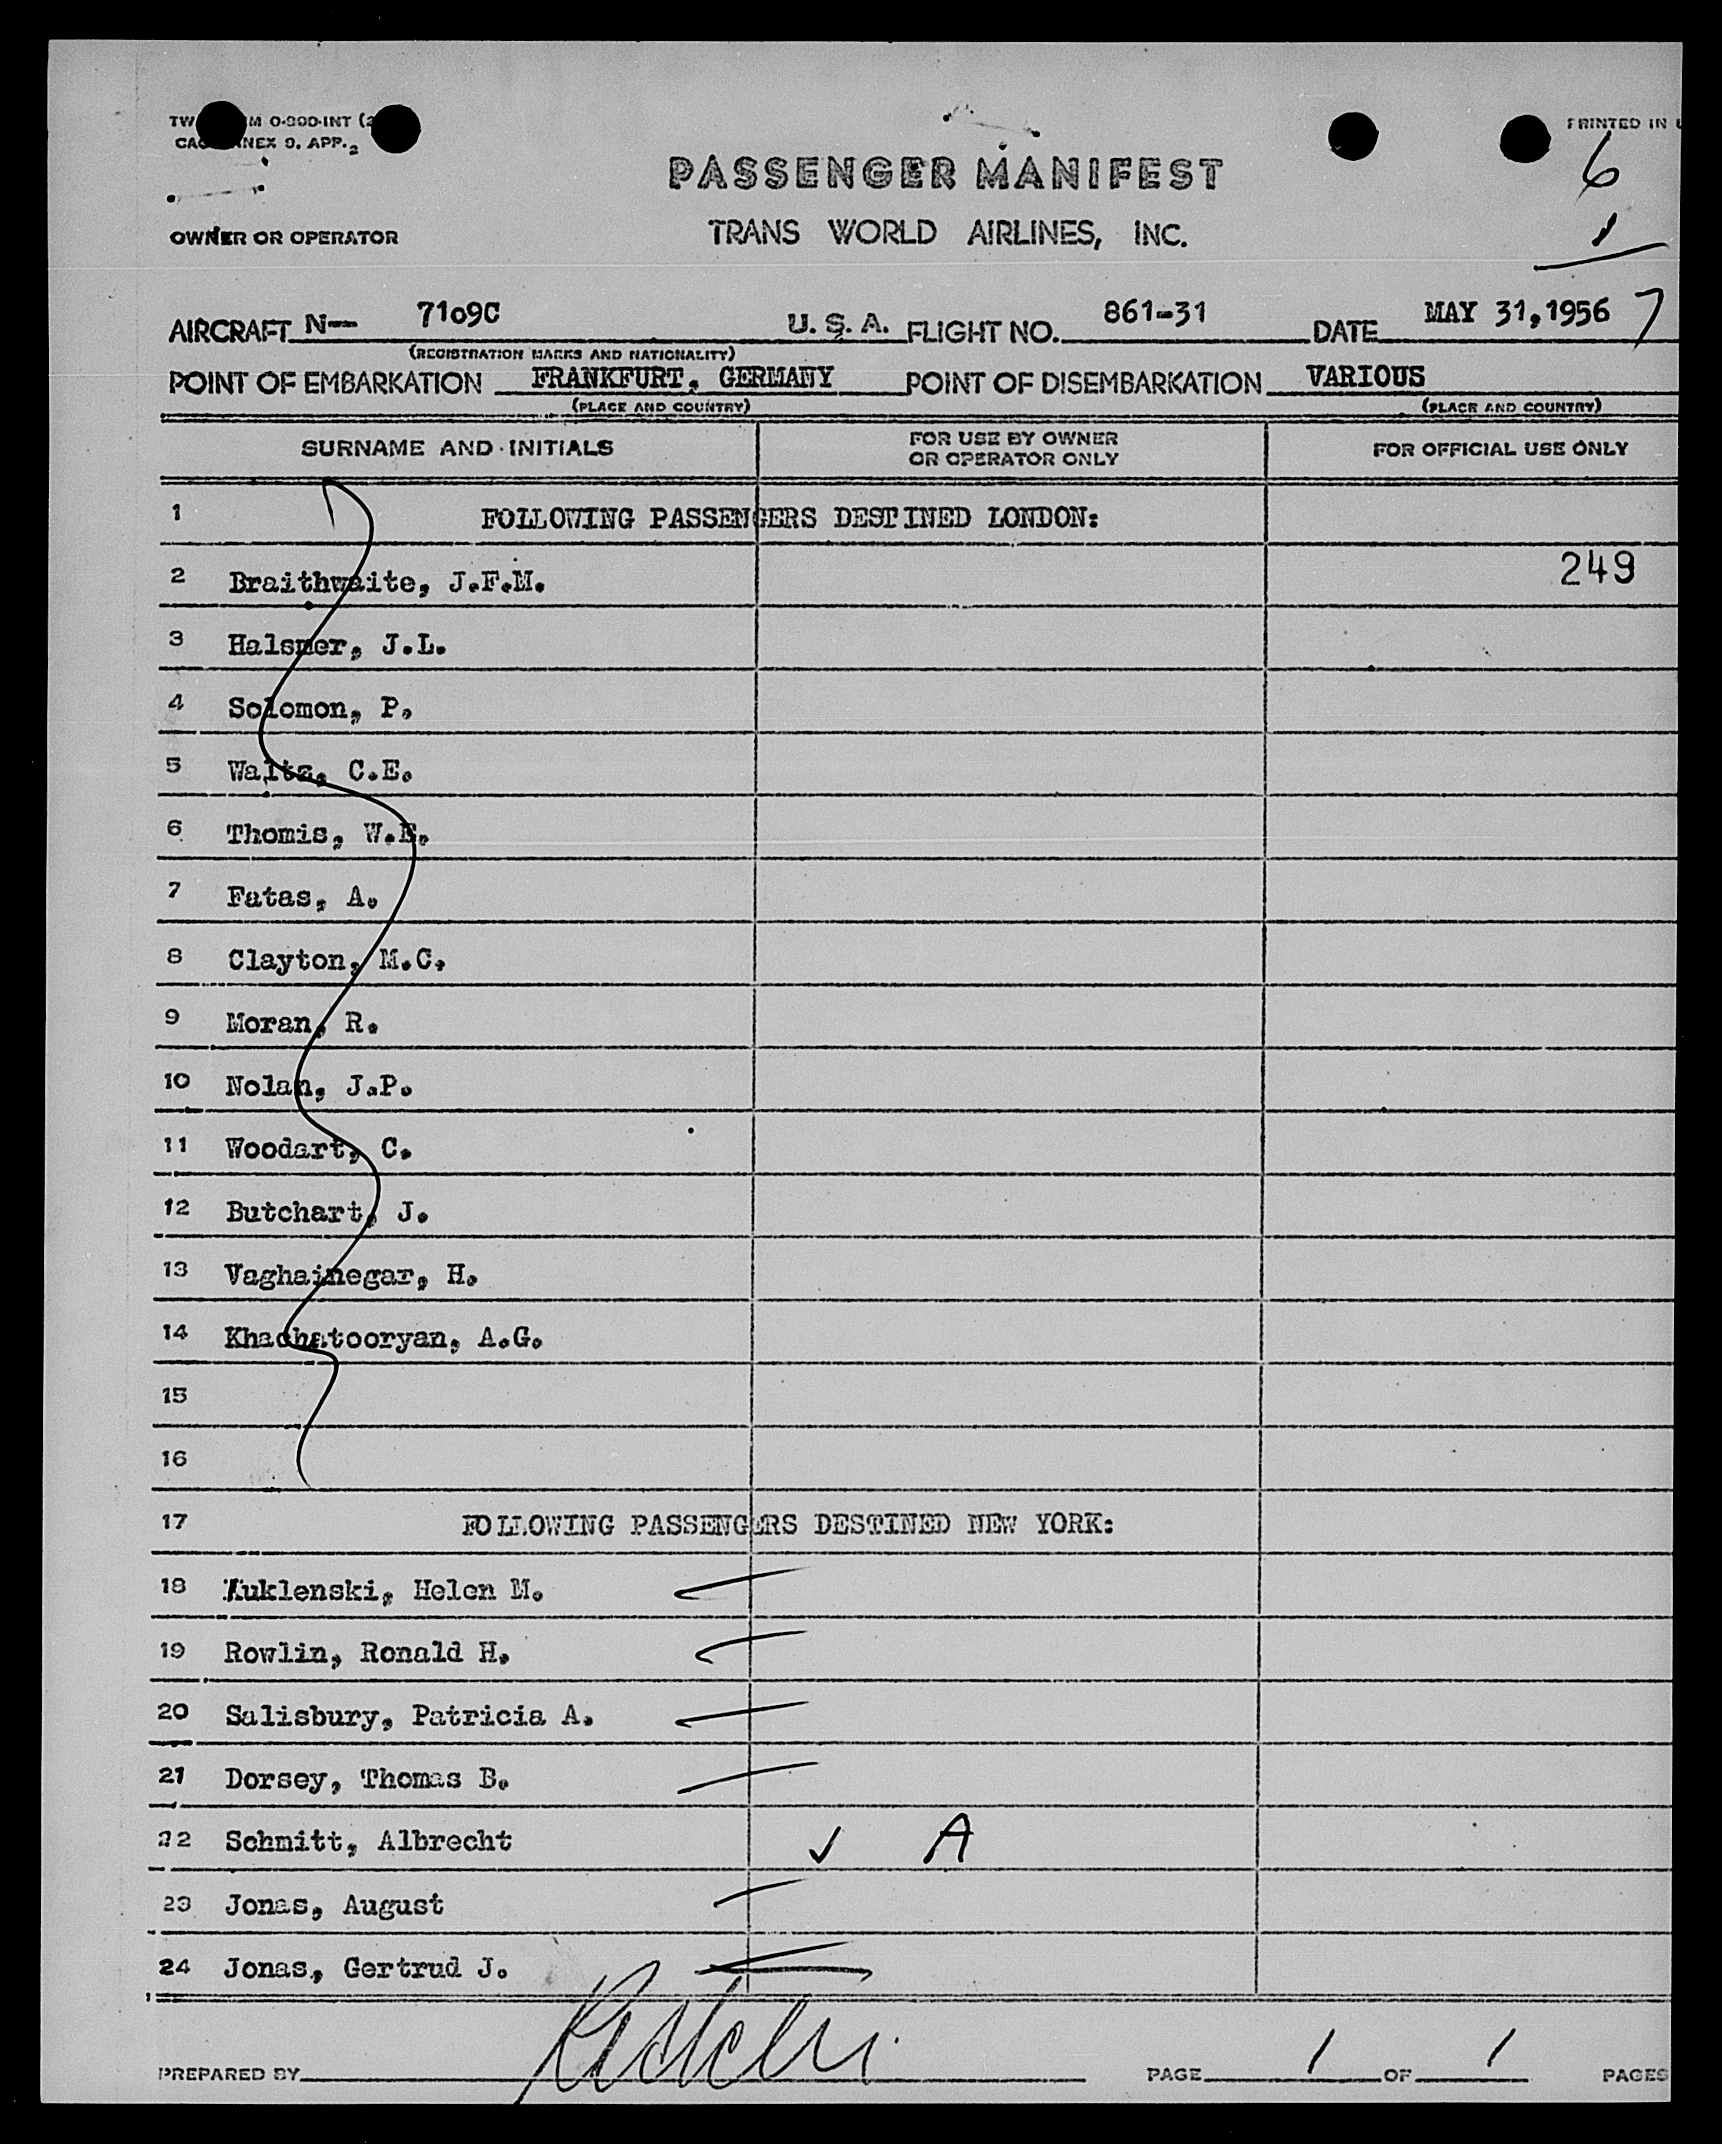 PRINTED IN
6
PASSENGER MANIFEST
1
OWNER OR OPERATOR
TRANS WORLD AIRLINES, INC.
AIRCRAFT N— 7109C U. S. A. FLIGHT NO. 861-31 DATE MAY 31,1956 7
(REGISTRATION MARKS AND NATIONALITY)
POINT OF EMBARKATION FRANKFURT, GERMANY POINT OF DISEMBARKATION VARIOUS
(PLACE AND COUNTRY) (PLACE AND COUNTRY)
SURNAME AND INITIALS FOR USE BY OWNER OR OPERATOR ONLY FOR OFFICIAL USE ONLY
1 FOLLOWING PASSENGERS DESTINED LONDON:
2 Braithwaite, J.F.M. 249
3 Halsmer, J.L.
4 Solomon, P.
5 Waltz, C.E.
6 Thomis, W.E.
7 Fatas, A.
8 Clayton, M.C.
9 Moran, R.
10 Nolan, J.P.
11 Woodart, C.
12 Butchart, J.
13 Vaghainegar, H.
14 Khachatooryan, A.G.
15
16
17 FOLLOWING PASSENGERS DESTINED NEW YORK:
18 Kuklenski, Helen M.
19 Rowlin, Ronald H.
20 Salisbury, Patricia A.
21 Dorsey, Thomas B.
22 Schmitt, Albrecht ✓ A
23 Jonas, August
24 Jonas, Gertrud J.
PREPARED BY PAGE 1 OF 1 PAGES